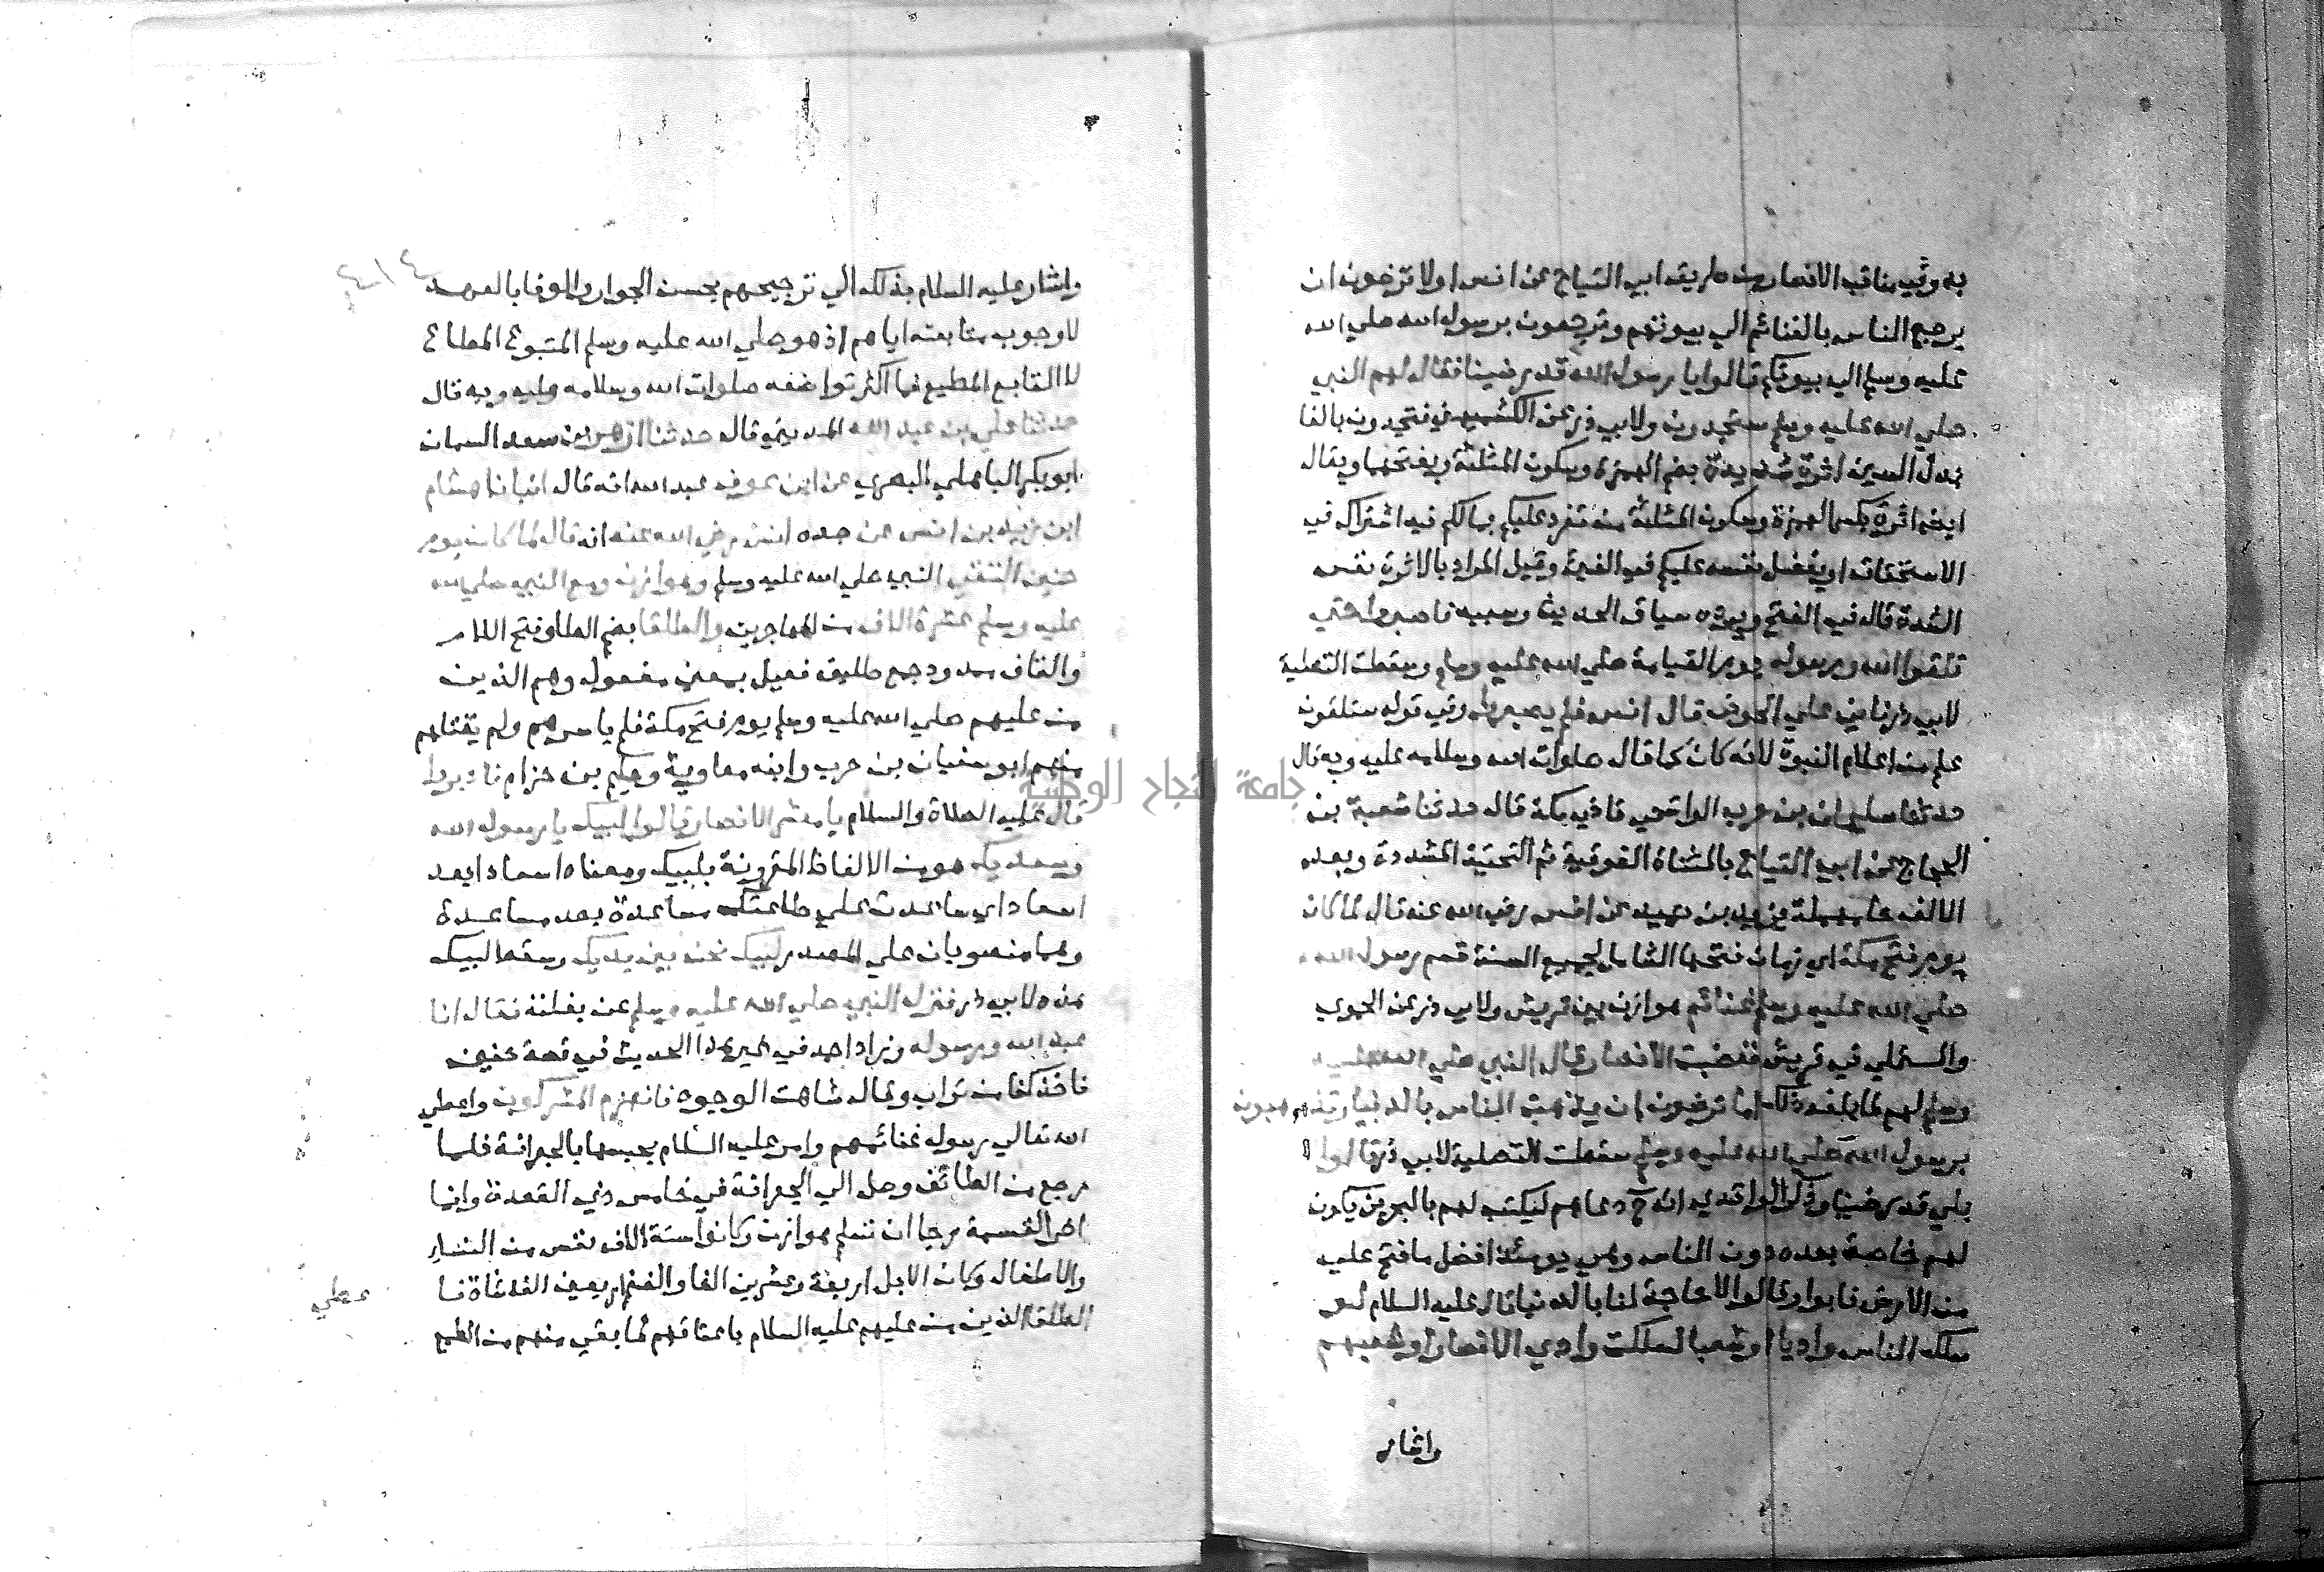 به وفي مناقب الانصار من طريق ابي التياح عن انس اولا ترضون ان
يرجع الناس بالغنائم الي بيوتهم وترجعون برسول الله صلي الله
عليه وسلم الي بيوتكم قالوا يا رسول الله قد رضينا فقال لهم النبي
صلي الله عليه وسلم ستجدون ولابي ذر عن الكشميهني فتجدون بالفا
بدل السين اثرة شديدة بضم الهمزة وسكون المثلثة وبفتحهما ويقال
ايضا اثرة بكسر الهمزة وسكون المثلثة من تفرد عليكم بمالكم فيه اشتراك في
الاستحقاق او يفضل نفسه عليكم في الفيء وقيل المراد بالاثرة نفس
الشدة قاله في الفتح ويرده سياق الحديث وسببه فاصبروا حتي
تلقوا الله ورسوله يوم القيامة صلي الله عليه وسلم وسقطت التصلية
لابي ذر فاني علي الحوض قال انس فلم يصبروا وفي قوله ستلقون
علم من اعلام النبوة لانه كان كما قال صلوات الله وسلامه عليه وبه قال
حدثنا سليمان بن حرب الواشحي قاضي مكة قال حدثنا شعبة بن
الحجاج عن ابي التياح بالمثناة الفوقية ثم التحتية المشددة وبعد
الالف حا مهملة يزيد بن حميد عن انس رضي الله عنه قال لما كان
يوم فتح مكة اي زمان فتحها الشامل لجميع السنة قسم رسول الله
صلي الله عليه وسلم غنائم هوازن بين قريش ولابي ذر عن الحموي
والمستملي في قريش فغضبت الانصار قال النبي صلي الله عليه
وسلم لهم لما بلغه ذلك اما ترضون ان يذهب الناس بالدنيا وتذهبون
برسول الله صلي الله عليه وسلم سقطت التصلية لابي ذر قالوا
بلي قد رضينا وذكر الواقدي انه ح دعاهم ليكتب لهم بالبحرين يكون
لهم خاصة بعده دون الناس وهي يومئذ افضل ما فتح عليه
من الارض فابوا وقالوا لا حاجة لنا بالدنيا قال عليه السلام لو
سلك الناس واديا او شعبا لسلكت وادي الانصار او شعبهم
واشار
٤١٤
واشار عليه السلام بذلك الي ترجيحهم بحسن الجوار والوفا بالعهد
لا وجوب متابعته اياهم اذ هو صلي الله عليه وسلم المتبوع المطاع
لا التابع المطيع فما اكثر تواضعه صلوات الله وسلامه عليه وبه قال
حدثنا علي بن عبد الله المديني قال حدثنا ازهر بن سعد السمان
ابو بكر الباهلي البصري عن ابن عون عبد الله انه قال انبانا هشام
ابن زيد بن انس عن جده انس رضي الله عنه انه قال لما كان يوم
حنين التقي النبي صلي الله عليه وسلم وهوازن ومع النبي صلي الله
عليه وسلم عشرة الاف من المهاجرين والطلقا بضم الطا وفتح اللام
والقاف ممدود جمع طليق فعيل بمعني مفعول وهم الذين
من عليهم صلي الله عليه وسلم يوم فتح مكة فلم ياسرهم ولم يقتلهم
منهم ابو سفيان بن حرب وابنه معاوية وحكيم بن حزام فادبروا
قال عليه الصلاة والسلام يا معشر الانصار قالوا لبيك يا رسول الله
وسعديك هو من الالفاظ المقرونة بلبيك ومعناه اسعادا بعد
اسعاد اي ساعدت علي طاعتك مساعدة بعد مساعدة
وهما منصوبان علي المصدر لبيك نحن بين يديك وسقط لبيك
هذه لابي ذر فنزل النبي صلي الله عليه وسلم عن بغلته فقال انا
عبد الله ورسوله وزاد احمد في غير هذا الحديث في قصة حنين
فاخذ كفا من تراب وقال شاهت الوجوه فانهزم المشركون واعطي
الله تعالي رسوله غنائمهم وامر عليه السلام بحبسها بالجعرانة فلما
رجع من الطائف وصل الي الجعرانة في خامس ذي القعدة وانما
اخر القسمة رجا ان تسلم هوازن وكانوا ستة الاف نفس من النسا
والاطفال وكان الابل اربعة وعشرين الفا والغنم اربعين الف شاة فا
عطي
الطلقا الذين من عليهم عليه السلام باعتاقهم لما بقي منهم من الطمع
جامعة النجاح الوطنية